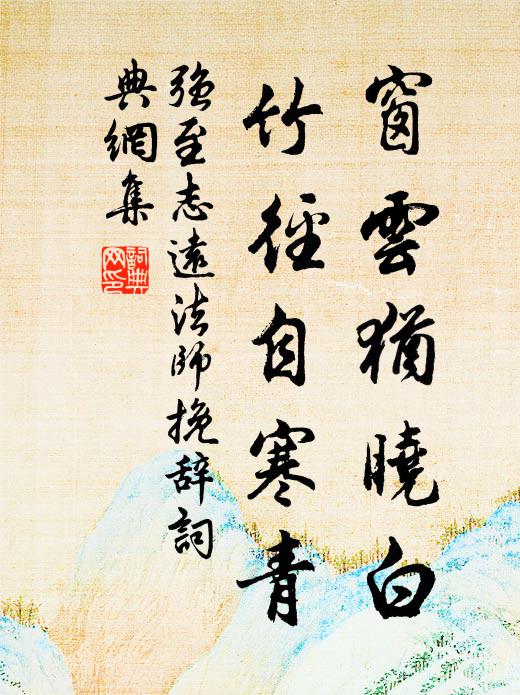 窗雲猶曉白
竹徑自寒青
强至志遠法師挽辞詞
典網集
詞典
网印